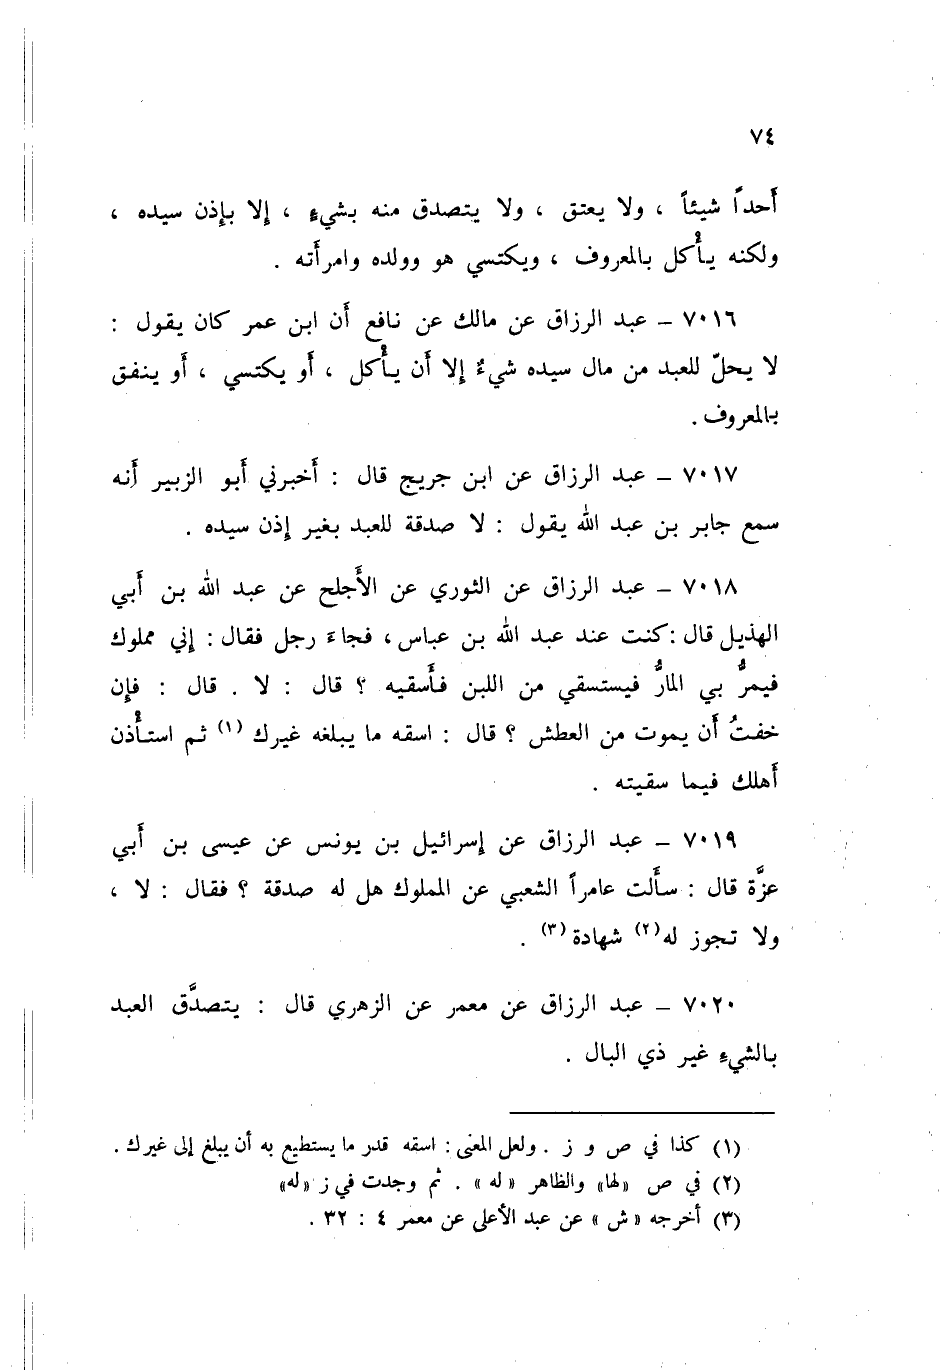 ٧٤
أحداً شيئاً ، ولا يعتق ، ولا يتصدق منه بشيءٍ ، إلا بإذن سيده ،
ولكنه يأْكل بالمعروف ، ويكتسي هو وولده وامرأته .
٧٠١٦ – عبد الرزاق عن مالك عن نافع أن ابن عمر كان يقول :
لا يحلّ للعبد من مال سيده شيءٌ إلا أن يأْكل ، أو يكتسي ، أو ينفق
بالمعروف .
٧٠١٧ – عبد الرزاق عن ابن جريج قال : أخبرني أبو الزبير أنه
سمع جابر بن عبد الله يقول : لا صدقة للعبد بغير إذن سيده .
٧٠١٨ – عبد الرزاق عن الثوري عن الأجلح عن عبد الله بن أبي
الهذيل قال : كنت عند عبد الله بن عباس ، فجاءَ رجل فقال : إني مملوك
فيمرُّ بي المارُّ فيستسقي من اللبن فأسقيه ؟ قال : لا . قال : فإن
خفتُ أن يموت من العطش ؟ قال : اسقه ما يبلغه غيرك (١) ثم استأْذن
أهلك فيما سقيته .
٧٠١٩ – عبد الرزاق عن إسرائيل بن يونس عن عيسى بن أبي
عزَّة قال : سأَلت عامراً الشعبي عن المملوك هل له صدقة ؟ فقال : لا ،
ولا تجوز له (٢) شهادة (٣) .
٧٠٢٠ – عبد الرزاق عن معمر عن الزهري قال : يتصدَّق العبد
بالشيءِ غير ذي البال .
(١) كذا في ص و ز . ولعل المعنى : اسقه قدر ما يستطيع به أن يبلغ إلى غيرك .
(٢) في ص «لها» والظاهر «له» . ثم وجدت في ز «له»
(٣) أخرجه «ش» عن عبد الأعلى عن معمر ٤ : ٣٢ .